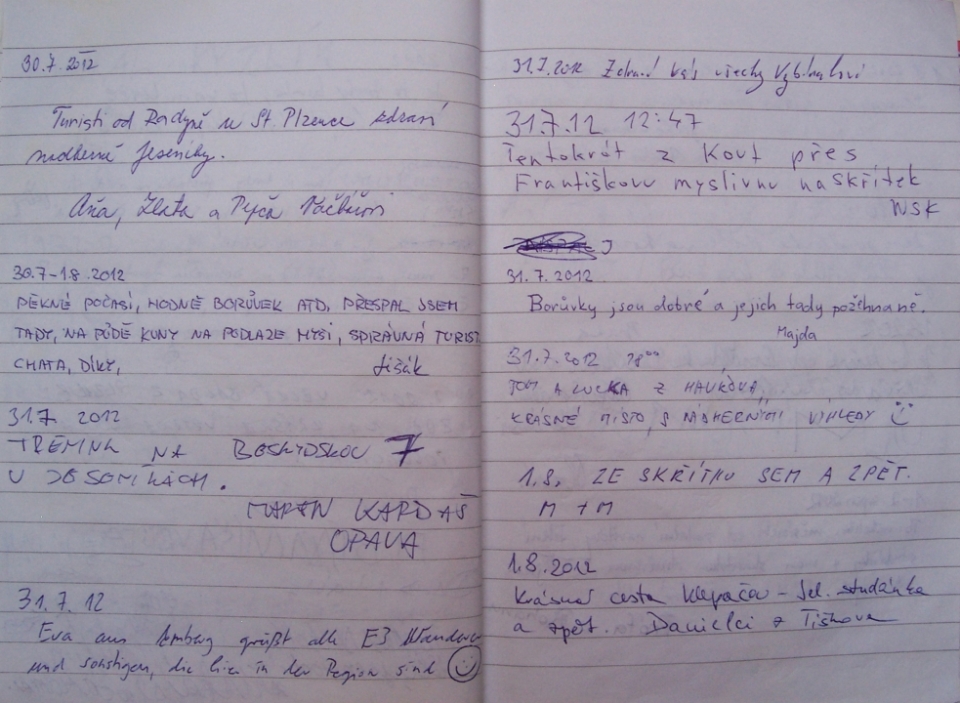 30.7.2012
Turisti od Radyně u St. Plzence zdraví
nádherné Jeseníky.
Áňa, Zlata a Pepča
30.7-1.8.2012
PĚKNÉ POČASÍ, HODNĚ BORŮVEK ATD. PŘESPAL JSEM
TADY, NA PŮDĚ KUNY NA PODLAZE MYŠI, SPRÁVNÁ TURIST
CHATA, DÍKY,
Jišák
31.7 2012
TRÉNINK NA BESKYDSKOU 7
V JESENÍKÁCH.
KARDAŠ
OPAVA
31.7.12
Eva aus Amberg grüßt alle E3 Wanderer
und sonstigen, die hier in der Region sind ☺
31.7.2012 Zdraví vás všechy
31.7.12 12:47
Tentokrát z Kout přes
Františkovu myslivnu na SKŘÍTEK
WSK
31.7.2012
Borůvky jsou dobré a jejich tady požehnaně.
Majda
31.7.2012 18°°
TOM A LUCKA Z
KRÁSNÉ MÍSTO, S NÁDHERNÝMI VÝHLEDY ☺
1.8. ZE SKŘÍTKU SEM A ZPĚT.
M + M
1.8.2012
Krásná cesta Klepáčov - Jel. studánka
a zpět. Danielci z Tišnova